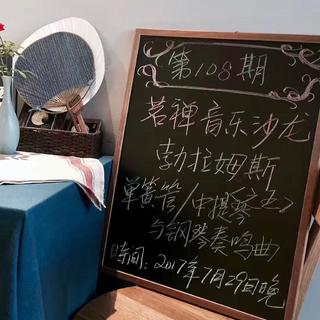 第108期
茗禅音乐沙龙
勃拉姆斯
单簧管/中提琴
与钢琴奏鸣曲
时间：2017年7月29日晚